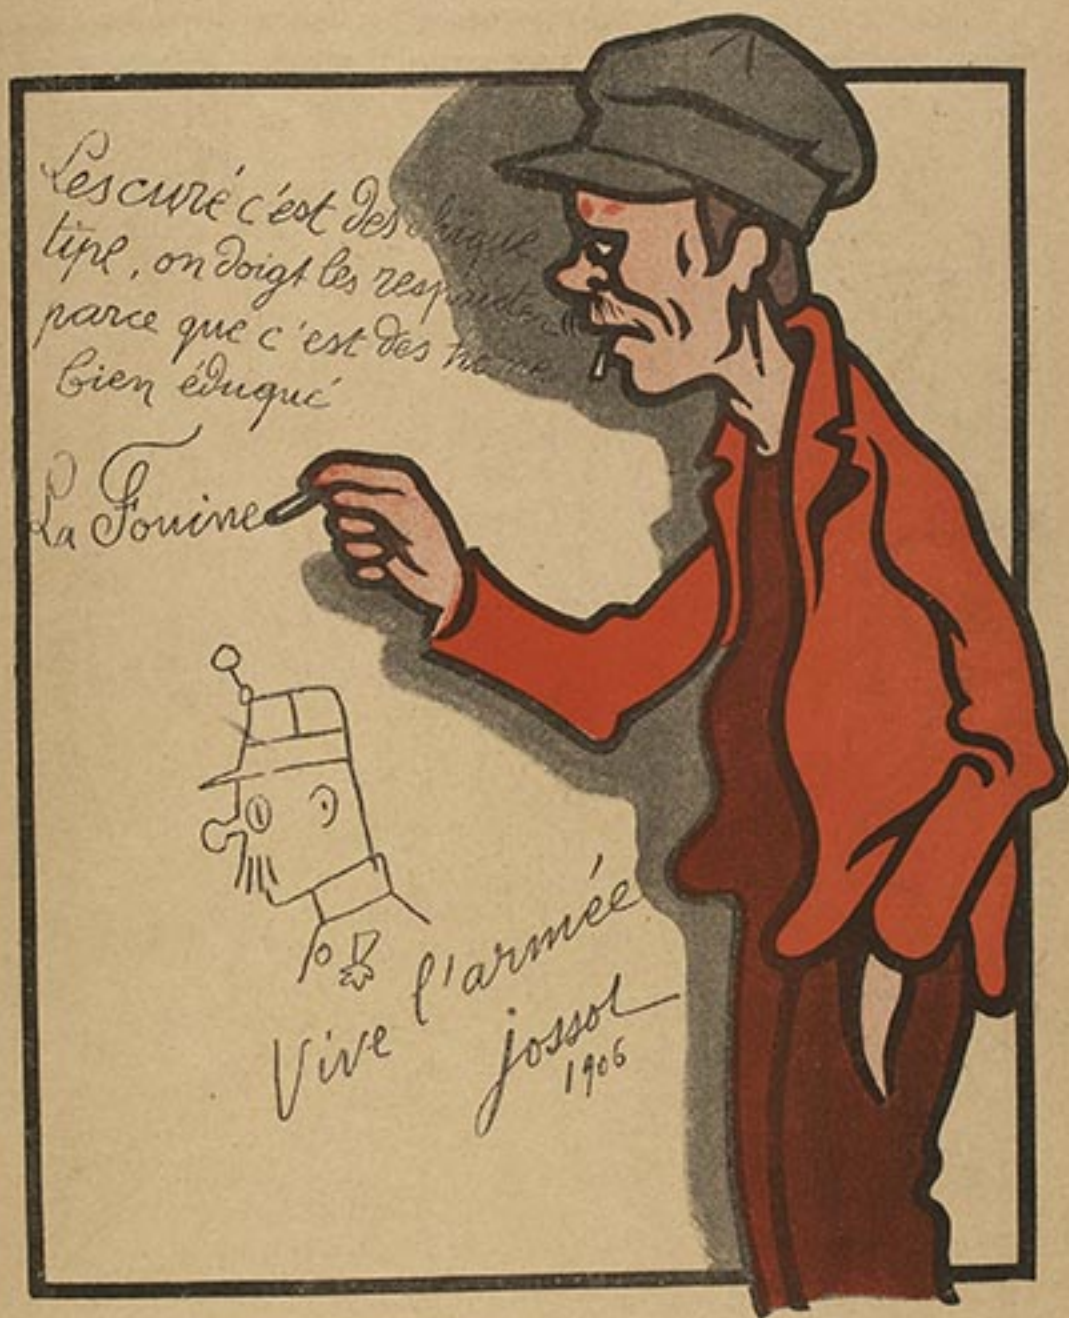 Les curé c'est des chique
tipe, on doigt les
parce que c'est des
bien éduqué
La Fouine
Vive l'armée
jossot
1906